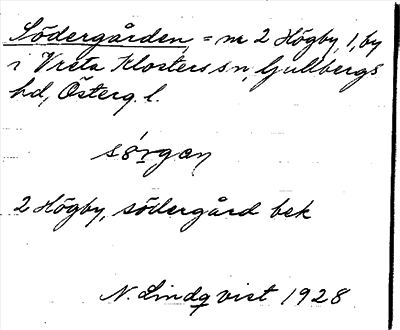 Södergården = nr 2 Högby, 1, by
i Vreta Klosters sn, Gullbergs
hd, Österg. l.
sørgan
2 Högby, södergård bek
N. Lindqvist 1928